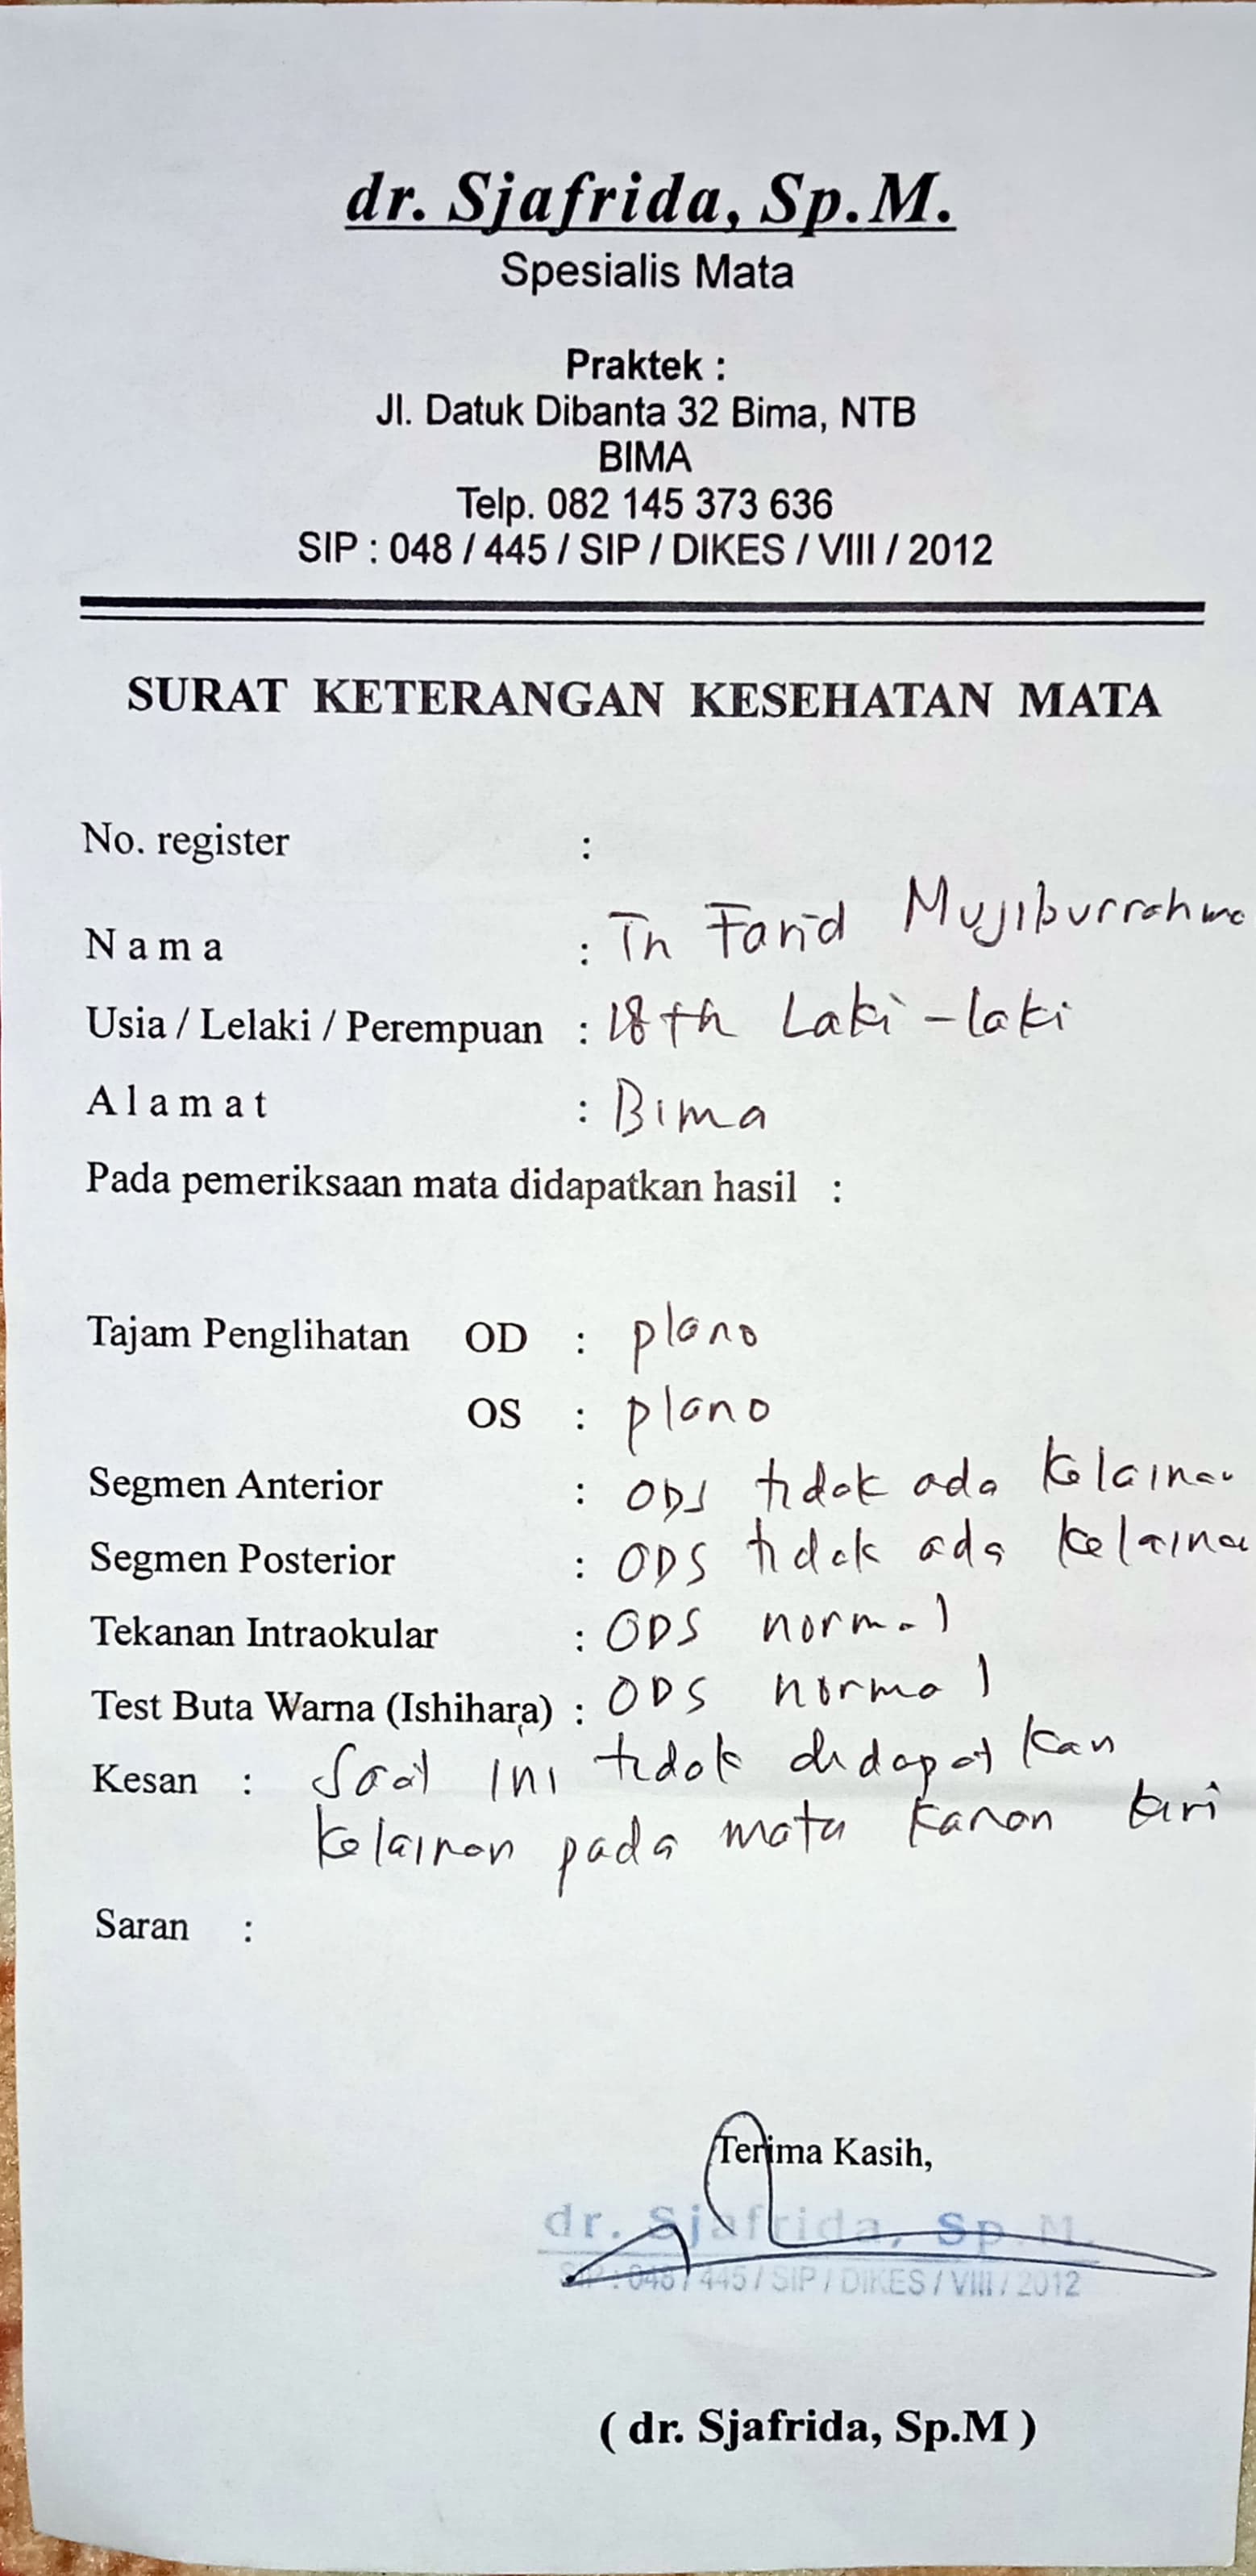 dr. Sjafrida, Sp.M.
Spesialis Mata
Praktek :
Jl. Datuk Dibanta 32 Bima, NTB
BIMA
Telp. 082 145 373 636
SIP : 048 / 445 / SIP / DIKES / VIII / 2012
SURAT KETERANGAN KESEHATAN MATA
No. register :
Nama : Tn Farid Mujiburrahma
Usia / Lelaki / Perempuan : 18 th Laki-laki
Alamat : Bima
Pada pemeriksaan mata didapatkan hasil :
Tajam Penglihatan OD : plano
OS : plano
Segmen Anterior : ODS tidak ada kelainan
Segmen Posterior : ODS tidak ada kelainan
Tekanan Intraokular : ODS normal
Test Buta Warna (Ishihara) : ODS normal
Kesan : Saat ini tidak didapatkan
kelainan pada mata kanan kiri
Saran :
Terima Kasih,
dr. Sjafrida, Sp.M.
SIP : 048 / 445 / SIP / DIKES / VIII / 2012
( dr. Sjafrida, Sp.M )